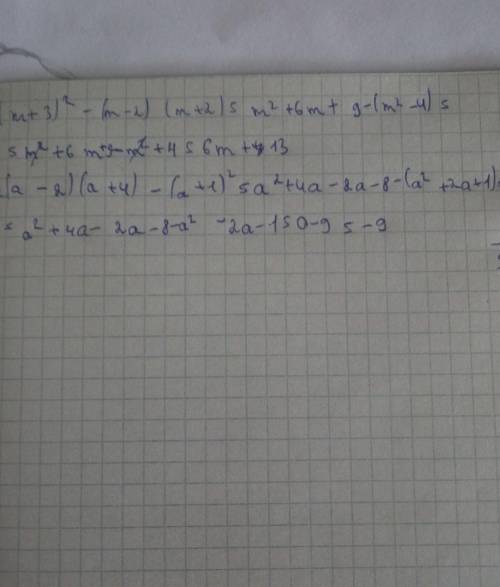 (m+3)² - (m-2) (m+2) = m² + 6m + 9 - (m² - 4) =
= m² + 6m + 9 - m² + 4 = 6m + 13
(a - 2)(a + 4) - (a + 1)² = a² + 4a - 2a - 8 - (a² + 2a + 1) =
= a² + 4a - 2a - 8 - a² - 2a - 1 = 0 - 9 = -9